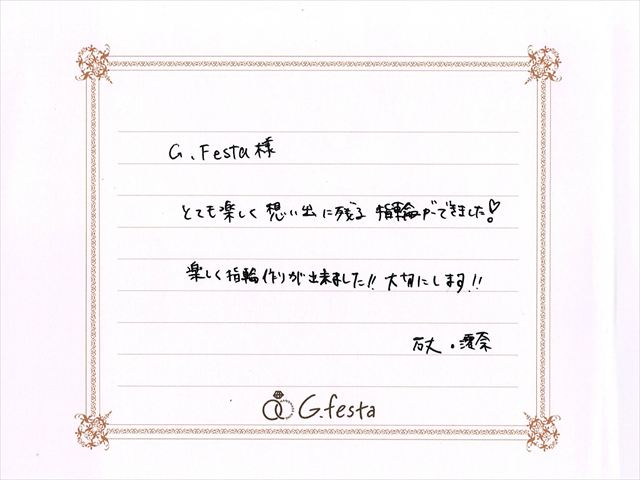 G.Festa様
とても楽しく 想い出に残る 指輪ができました!
楽しく指輪作りが出来ました!! 大切にします!!
G.festa